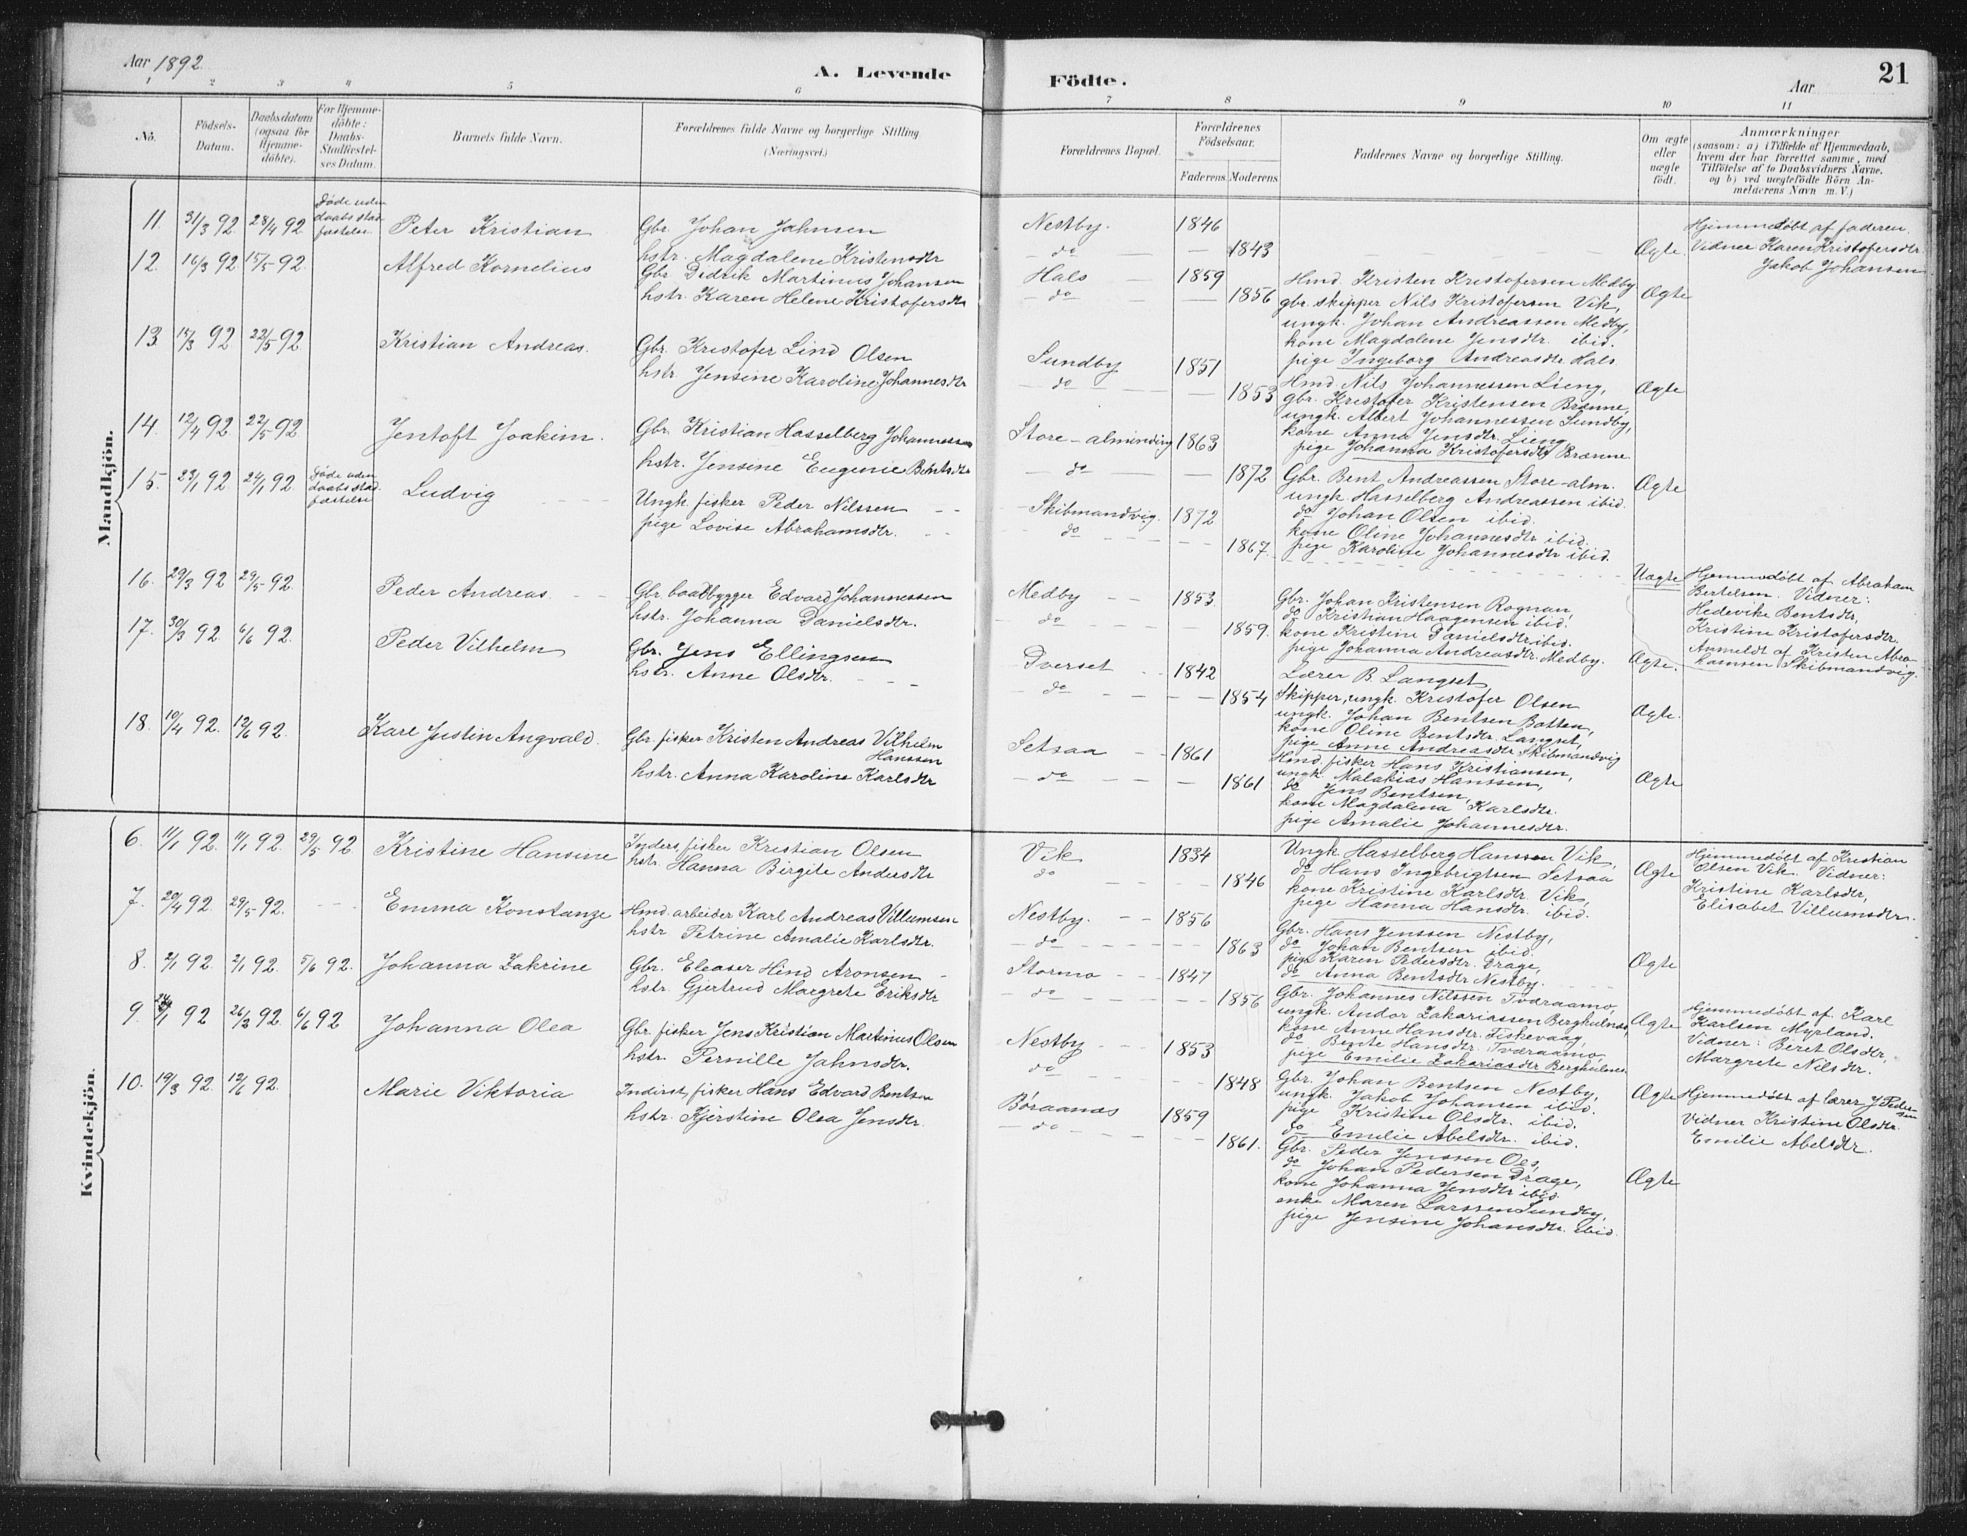 Aar 1892
A. Levende
Födte.
Aar
21
1 2 3 4 5 6 7 8 9 10 11
Nö.
Födsels-Datum.
Daabsdatum (ogsaa for Hjemme-döbte).
For Hjemme-döbte: Daabs-Stadfæstel-ses Datum.
Barnets fulde Navn.
Forældrenes fulde Navne og borgerlige Stilling (Næringsvei.)
Forældrenes Bopæl.
Forældrenes Födselsaar.
Faderens. Moderens.
Faddernes Navne og borgerlige Stilling.
Om ægte eller uægte födt.
Anmærkninger
(saasom: a) i Tilfælde af Hjemmedaab,
hvem der har forrettet samme, med
Tilföielse af to Daabsvidners Navne.
og b) ved uægtefödte Börn An-
melderens Navn m. V.)
Mandkjön.
11 31/3 92 28/4 92 Døde uden daabs stad fæstelse Peter Kristian
Gbr. Johan Jahnsen
hstr. Magdalene Kristensdtr
Nestby. 1846
do 1843
Ægte.
Hjemmedøbt af faderen.
Vidner Karen Kristofersdtr.
Jakob Johansen
12. 16/3 92 15/5 92 Alfred Kornelius
Gbr Didrik Martinus Johansen
hstr. Karen Helene Kristofersdtr
Hals 1859
do 1856
Hmd. Kristen Kristofersen Medby
gbr. skipper Nils Kristofersen Vik,
ungk. Johan Andreassen Medby,
kone Magdalene Jensdtr. ibid.
pige Ingeborg Andreasdtr. Hals
Ægte
13. 15/3 92 22/5 92 Kristian Andreas.
Gbr. Kristofer Lind Olsen
hstr Jensine Karoline Johannesdtr
Sundby 1851
do 1853
Hmd. Nils Johannessen Lieng,
gbr. Kristofer Kristensen Brænne,
ungk. Albert Johannessen Sundby,
kone Anna Jensdtr. Lieng
pige Johanna Kristofersdtr Brænne
Ægte
14. 12/4 92 22/5 92 Jentoft Joakim.
Gbr. Kristian Hasselberg Johannessen
hstr. Jensine Eugenie Bentsdtr
Store-alminding 1863
do 1872
Gbr. Bent Andreassen Store-alm.
ungk. Hasselberg Andreassen ibid.
do Johan Olsen ibid.
kone Oline Johannesdtr ibid.
pige Karoline Johannesdtr ibid.
Ægte
15. 23/1 92 24/1 92 Døde uden daabs stad fæstelse Ludvig
Ungk. fisker Peder Nilssen
pige Lovise Abrahamsdtr.
Skibmandvig. 1872
do 1867
Uægte
Hjemmedøbt af Abraham
Bertelsen. Vidner:
Hedevike Bentsdtr,
Kristine Kristofersdtr.
Anmeldt af Kristen Abra-
hamsen Skibmandvig.
16. 29/3 92 29/5 92. Peder Andreas
Gbr. baadbygger Edvard Johannessen
hstr. Johanna Danielsdtr.
Medby 1853
do 1859.
Gbr. Johan Kristensen Rognan,
do Kristian Haagensen ibid.
kone Kristine Danielsdtr ibid.
pige Johanna Andreasdtr. Medby.
Ægte.
17. 30/3 92 6/6 92. Peder Vilhelm
Gbr. Jens Ellingsen
hstr. Anne Olsdtr.
Dverset 1842
do 1854
Lærer B Langset
Skipper, ungk. Kristofer Olsen
ungk. Johan Bentsen Botten,
kone Oline Bentsdtr. Langset,
pige Anne Andreasdtr. Skibmandvig
Ægte.
18. 10/4 92. 12/6 92. Karl Justin Angvald.
Gbr. fisker Kristen Andreas Vilhelm
Hanssen
hstr. Anna Karoline Karlsdtr
Setsaa 1861
do 1861
Hmd. fisker Hans Kristiansen,
ungk. Malakias Hanssen,
do Jens Bentsen,
kone Magdalena Karlsdtr.
pige Amalie Johannesdtr.
Ægte
Kvindekjön.
6. 11/1 92. 11/1 92. 29/5 92 Kristine Hansine
Inders. fisker Kristian Olsen
hstr. Hanna Birgite Andersdtr
Vik 1834
do 1846
Ungk Hasselberg Hanssen Vik,
do Hans Ingebrigtsen Setsaa
kone Kristine Karlsdtr. Vik,
pige Hanna Hansdtr. ibid.
Ægte
Hjemmedøbt af Kristian
Olsen Vik. Vidner:
Kristine Karlsdtr,
Elisabet Villumsdtr.
7. 20/4 92. 29/5 92. Emma Konstanze
Hmd. arbeider Karl Andreas Villumsen
hstr Petrine Amalie Karlsdtr.
Nestby. 1856
do 1863
Gbr. Hans Jenssen Nestby,
do Johan Bentsen ibid.
pige Karen Pedersdtr. Drage,
do Anna Bentsdtr Nestby.
Ægte
8. 2/1 92. 2/1 92. 5/6 92. Johanna Zakrine
Gbr. Eleaser Hind Aronsen
hstr. Gjertrud Margrete Eriksdtr
Stormo 1847
do 1856
Gbr. Johannes Nilssen Tværaamo,
ungk. Andor Zakariassen Berghulnes,
kone Anne Hansdtr. Fiskevaag,
do Bente Hansdtr. Tværaamo,
pige Emilie Zakariasdtr Berghulnes.
Ægte
Hjemmedøbt af Karl
Karlsen Myrland.
Vidner: Beret Olsdtr,
Margrete Nilsdtr.
9. 92 26/3 92. 6/6 92 Johanna Olea
Gbr. fisker Jens Kristian Martinus Olsen
hstr. Pernille Jahnsdtr.
Nestby 1853
do 1848
Gbr. Johan Bentsen Nestby,
ungk. Jakob Johansen ibid.
pige Kristine Olsdtr. ibid.
do Emilie Abelsdtr. ibid.
Ægte
Hjemmedøbt af lærer J Peder-
sen
Vidner Kristine Olsdtr.
Emilie Abelsdtr.
10. 19/3 92. 12/6 92. Marie Viktoria
Inderst, fisker Hans Edvard Bentsen
hstr. Kjerstine Olea Jensdtr.
Børaanæs 1859
do 1861.
Gbr. Peder Jenssen Oes,
do Johan Pedersen Drage,
kone Johanna Jensdtr ibid.
enke Maren Larssen Sundby,
pige Jensine Johansdtr. ibid.
Ægte